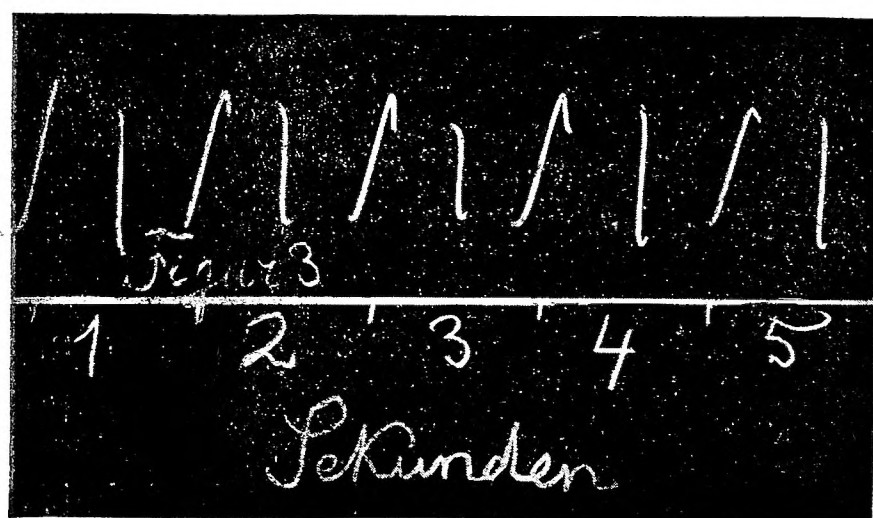 Figur 3
1 2 3 4 5
Sekunden